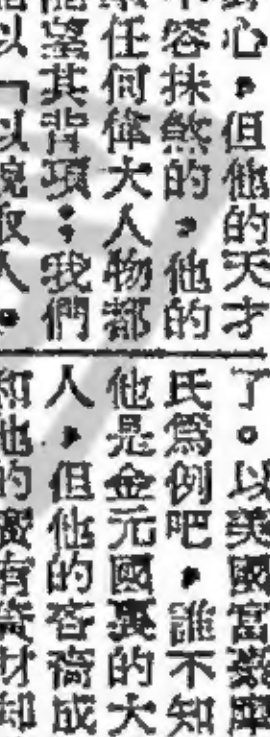 心，但他的天才
容抹煞的，他的
任何偉大人物都
望其背項；我們
以「以貌取人。
了。以美國富豪
氏爲例吧，誰不知
他是金元國裏的大
人，但他的吝嗇成
和他的富有資財却